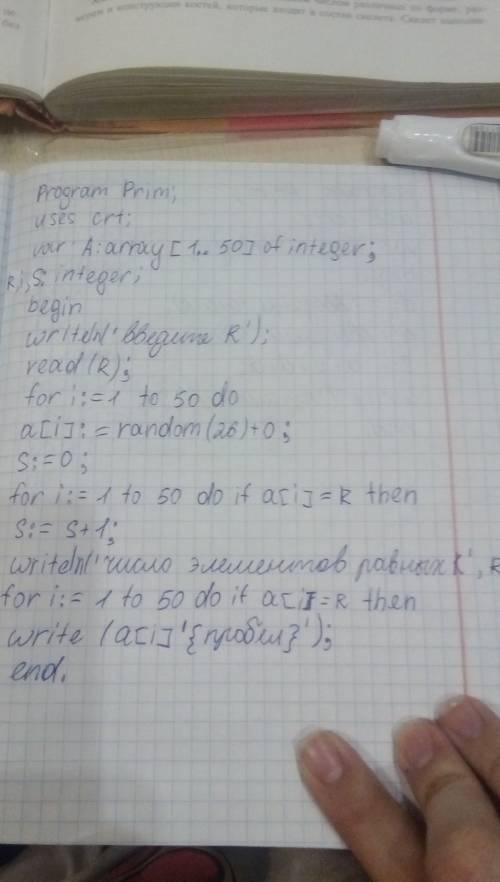 мерам и конструкции костей, которые входят в состав скелета. Скелет выполня-
Program Prim;
uses crt;
var A: array [1..50] of integer;
R i, S: integer;
begin
writeln('введите R');
read(R);
for i:=1 to 50 do
a[i]:=random(26)+0;
S:=0;
for i:=1 to 50 do if a[i]=R then
S:=S+1;
writeln('число элементов равных K', R
for i:=1 to 50 do if a[i]=R then
write (a[i]'{пробел}');
end.